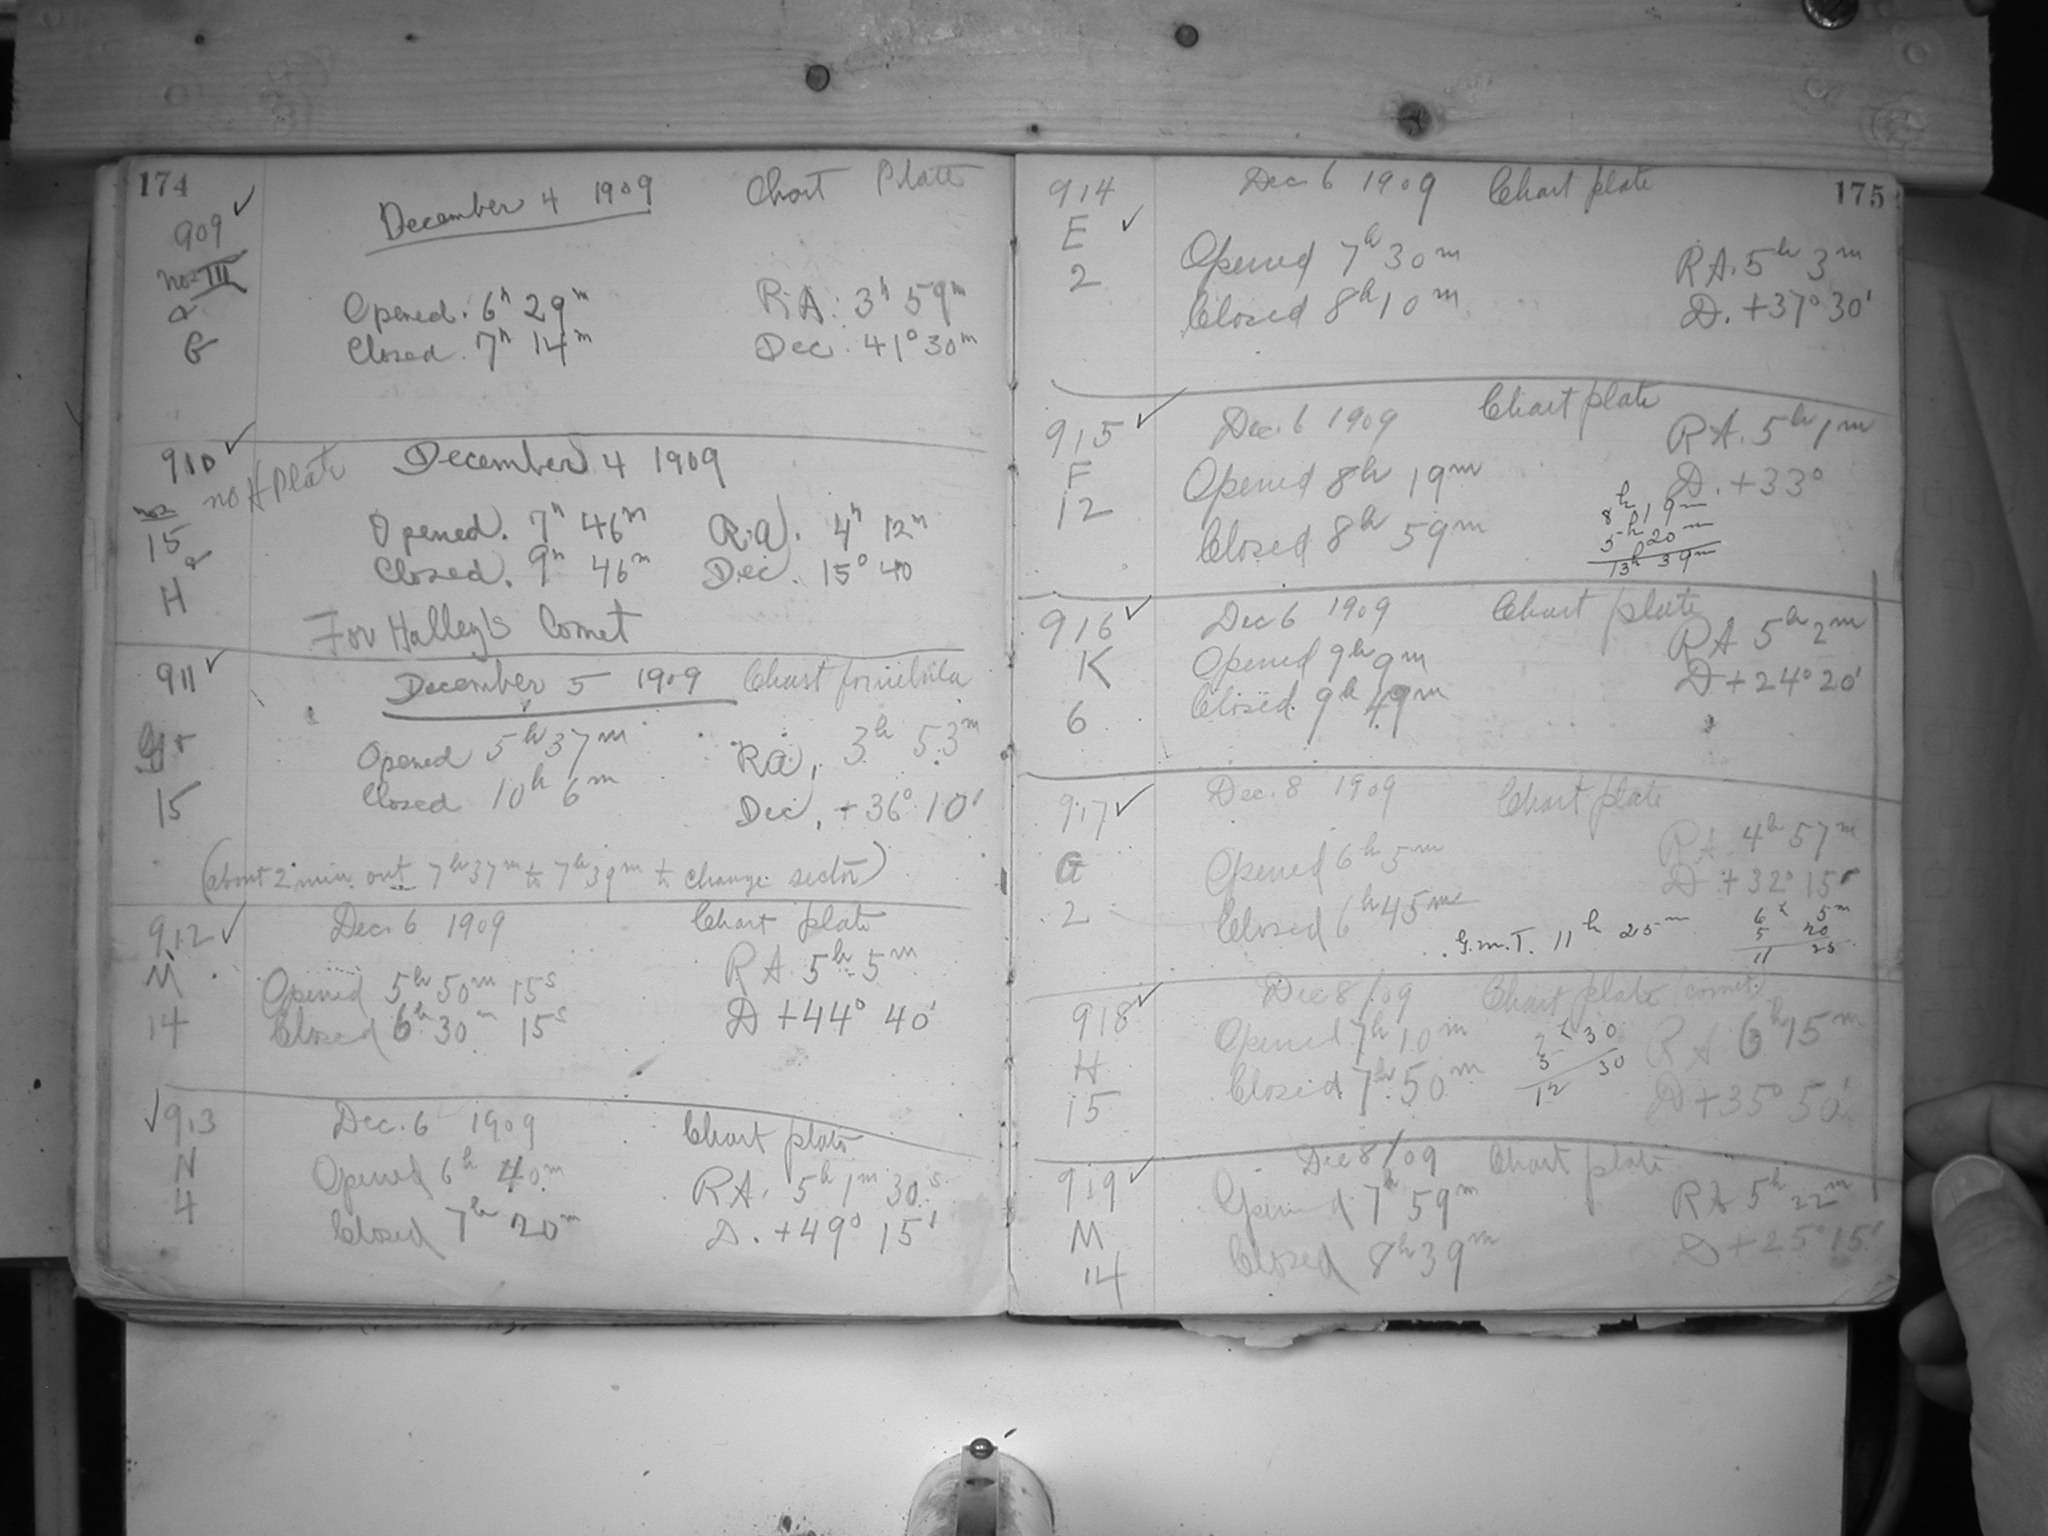 174
909 ✓
December 4 1909 Chart Plate
No III
a
G
Opened. 6h 29m R.A. 3h 59m
Closed. 7h 14m Dec. 41° 30m
910 ✓
not Plate December 4 1909
15
a
H
Opened. 7h 46m R.a. 4h 12m
Closed. 9h 46m Dec. 15° 40
For Halley's Comet
911 ✓
December 5 1909 Chart for nebula
15
Opened 5h 37m Ra, 3h 53m
Closed 10h 6m Dec, +36° 10'
(about 2 min out 7h 37m to 7h 39m to change sector)
912 ✓
M
14
Dec. 6 1909 Chart plate
Opened 5h 50m 15s RA 5h 5m
Closed 6h 30m 15s D +44° 40'
✓ 913
N
4
Dec. 6 1909 Chart plate
Opened 6h 40m RA. 5h 1m 30s
Closed 7h 20m D. +49° 15'
175
914
E ✓
2
Dec. 6 1909 Chart plate
Opened 7h 30m RA. 5h 3m
Closed 8h 10m D. +37° 30'
915 ✓
F
12
Dec. 6 1909 Chart plate
RA. 5h 1m
Opened 8h 19m D. +33°
Closed 8h 59m
8h 19m
5h 20m
13h 39m
916 ✓
K
6
Dec 6 1909 Chart plate
Opened 9h 9m RA 5h 2m
Closed 9h 49m D +24° 20'
917 ✓
G
2
Dec. 8 1909 Chart plate
Opened 6h 5m RA 4h 57m
Closed 6h 45m D +32° 15'
G.m.T. 11h 25m
6h 5m
5 20
11 25
918 ✓
H
15
Dec 8/09 Chart plate (comet)
Opened 7h 10m RA 6h 15m
Closed 7h 50m D +35° 50'
7h 30
5
12 50
919 ✓
M
14
Dec 8/09 Chart plate
Opened 7h 59m RA 5h 22m
Closed 8h 39m D +25° 15'